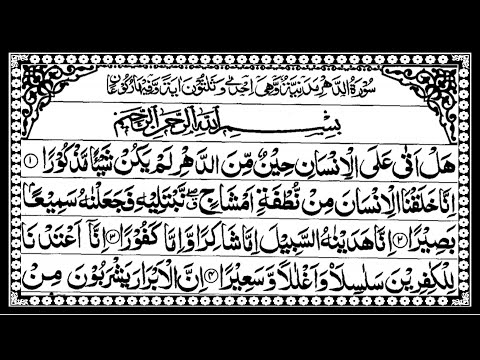 سُوْرَةُ الدَّهْرِ مَدَنِيَّةٌ وَّهِيَ اِحْدٰى وَّ ثَلٰثُوْنَ اٰيَةً وَّ فِيْهَا رُكُوْعَانِ
بِسْمِ اللّٰهِ الرَّحْمٰنِ الرَّحِيْمِ
هَلْ اَتٰى عَلَى الْاِنْسَانِ حِيْنٌ مِّنَ الدَّهْرِ لَمْ يَكُنْ شَيْـًٔا مَّذْكُوْرًا ۝١
اِنَّا خَلَقْنَا الْاِنْسَانَ مِنْ نُّطْفَةٍ اَمْشَاجٍ ۖۗ نَّبْتَلِيْهِ فَجَعَلْنٰهُ سَمِيْعًۢا
بَصِيْرًا ۝٢ اِنَّا هَدَيْنٰهُ السَّبِيْلَ اِمَّا شَاكِرًا وَّ اِمَّا كَفُوْرًا ۝٣ اِنَّاۤ اَعْتَدْنَا
لِلْكٰفِرِيْنَ سَلٰسِلَا۟ وَ اَغْلٰلًا وَّ سَعِيْرًا ۝٤ اِنَّ الْاَبْرَارَ يَشْرَبُوْنَ مِنْ